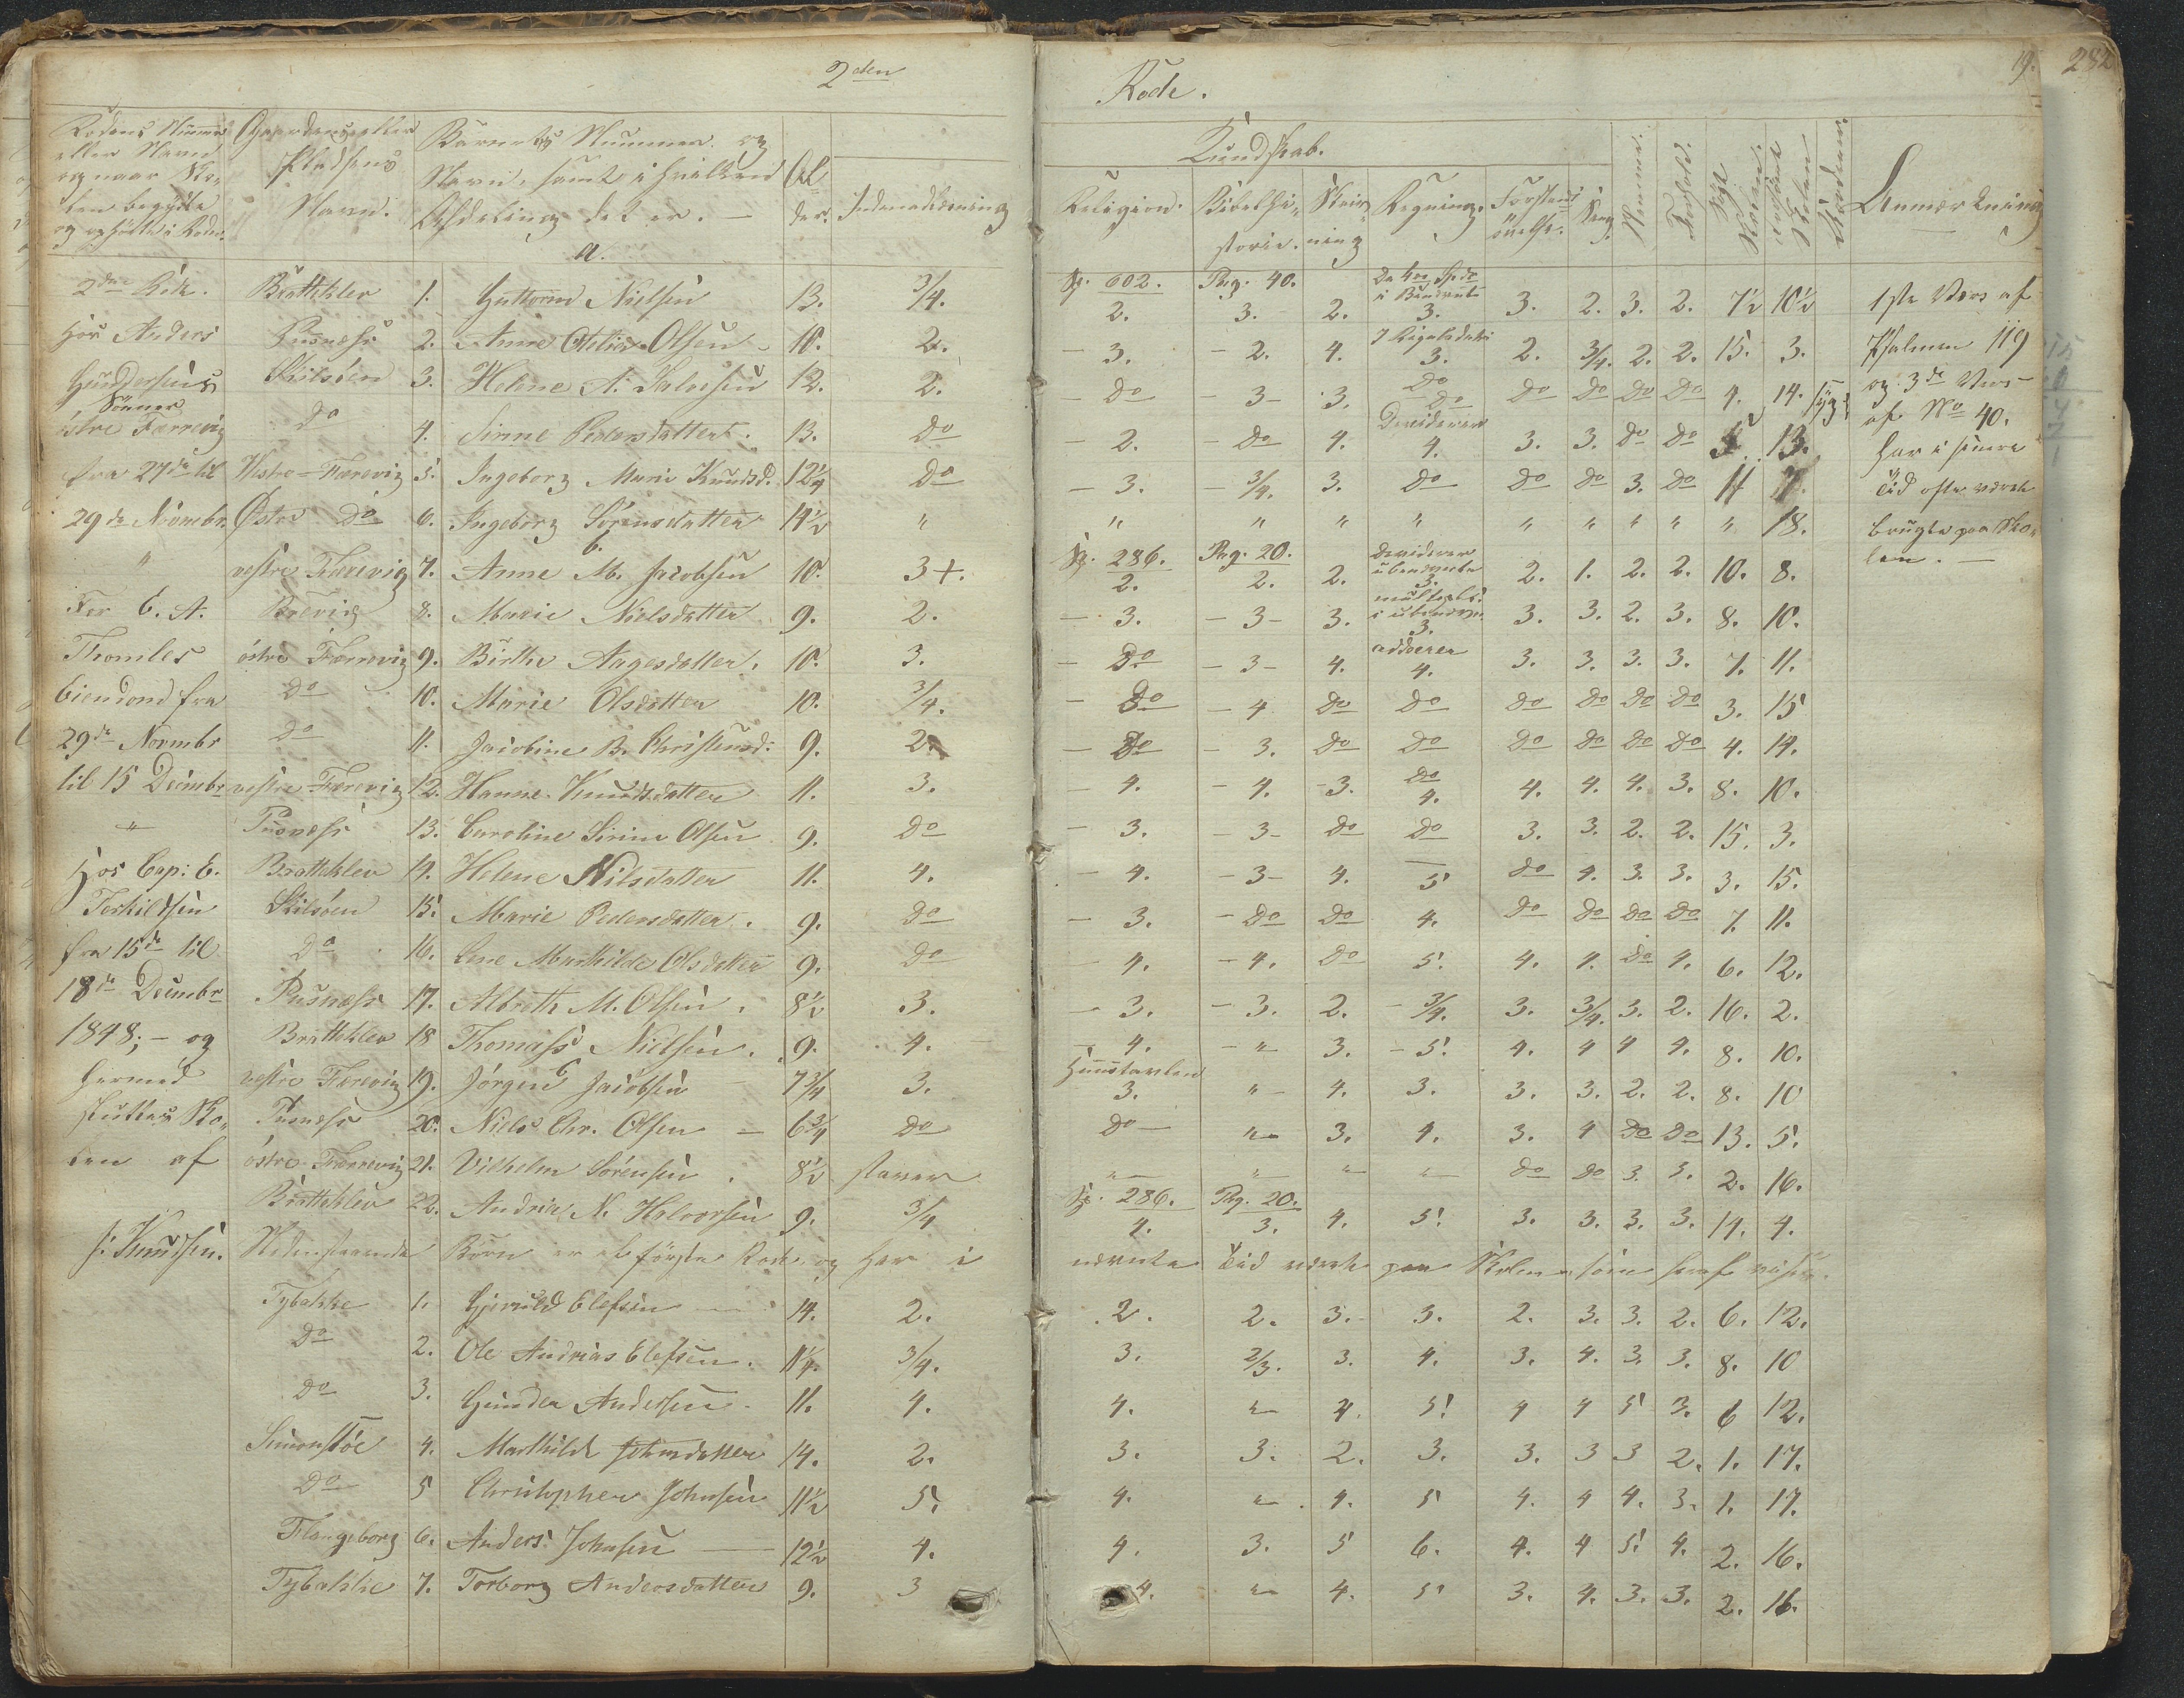 2den
Rode.
19.
282
Rodens Nummer eller Navn og naar Skolen begyndte og ophørte i Roden.
Gaardens eller Pladsens Navn.
Barnets Nummer og Navn, samt i hvilken Afdeling det er.
Alder.
Indenadslæsning
Kundskab.
Religion.
Bibelhistorie.
Skrivning
Regning.
Forstandsøvelse.
Sang.
Nemme.
Forhold.
Søgt Skolen.
Forsømt Skolen
Aarsagen.
Anmærkning
a.
Sp. 602. Pag. 40.
2den Rode. Brattekler 1. Guttorm Nielsen 13. 3/4. 2. 3. 2. 3. 3. 2. 3. 2. 7½ 10½ 1ste Vers af
Hos Anders Pusnæss 2. Anne Otilia Olsen 10. 2. - 3. - 2. 4. 3. 2. 3/4. 2. 2. 15. 3. Psalmen 119
Gundersens Skilsöen 3. Helene A. Salvesen 12. 2. - Do - 3 - 3. Do Do Do Do Do 4. 14. syg og 3de Vers
Sönner
östre Færrevig Do 4. Sirine Pedersdatter. 13. Do - 2. - Do 4. 4. 3. 3. Do Do 5. 13. af No 40.
fra 27de til Vestre-Færevig 5. Ingeborg Marie Knudsd. 12¼ Do - 3. - 3/4. 3. Do Do Do 3. Do 11 7. Har i senere
29de Novmbr. Östre Do 6. Ingeborg Sörensdatter 14½ " " " " " " " " " " 18. Tid ofte været
brugte paa Skolen. -
b.
Sp. 286. Pag. 20.
" vestre Færevig 7. Anne M. Jacobsen 10. 3+. 2. 2. 2. 3. 2. 1. 2. 2. 10. 8.
Brevig 8. Marie Nielsdatter 9. 2. - 3. - 3 - 3. 3. 3. 3. 2. 3. 8. 10.
Thomles östre Færrevig 9. Birthe Aagesdatter. 10. 3. - Do - 3 - 4. adderer 4. 3. 3. 3. 3. 7. 11.
Eiendond fra Do 10. Marie Olsdatter 10. 3/4. - Do - 4 Do Do Do Do Do Do 3. 15
29de Novmbr Do 11. Jacobine B. Christensd: 9. 2. - Do - 3. Do Do Do Do Do Do 4. 14.
til 15 Decmbr vestre Færevig 12. Hanne Knudsdatter 11. 3. - 4. - 4. - 3. Do 4. 4. 4. 4. 3. 8. 10.
" Pusnæss 13. Caroline Sirine Olsen 9. Do - 3. - 3 - Do Do 3. 3. 2. 2. 15. 3.
Hos Cap: E. Brattekler 14. Helene Nilsdatter 11. 4. - 4. - 3 - 4. 5 Do 4. 3. 3. 3. 15.
Terkildsen Skilsöen 15. Marie Pedersdatter. 9. Do - 3. - Do Do 4. Do Do Do Do 7. 11.
fra 15de til Do 16. Lene Mathilde Olsdatter 9. Do - 4. - 4. Do 5. 4. 4. Do 4. 6. 12.
18de Decmbr Pusnæss 17. Albreth M. Olsen. 8½ 3. - 3. - 3. 2. - 3/4. 3. 3/4. 3. 2. 16. 2.
1848; - og Brattekler 18 Thomass Nielsen. 9. 4. - 4. - " 3. - 5. 4. 4 4 4. 8. 10.
hermed vestre Færevig 19. Jörgen Jacobsen 7¾ 3. 3. " 4. 3. 3. 3. 2. 2. 8. 10
sluttes Sko- Pusnæss 20. Niels Chr. Olsen - 6¾ Do Do - " 3. 4. 3. 4 Do Do 13. 5.
len af östre Færrevig 21. Vilhelm Sörensen. 8½ staver " " " " Do Do 3. 3. 2. 16.
Sp. 286. Pag. 20.
Brattekler 22. Andrias N. Halvorsen 9. 3/4 4. 3. 4. 5. 3. 3. 3. 3. 14. 4.
S: Knudsen. Nedenstaaende Börn er af förste Rode og har i nævnte Tid været paa Skolen som heraf vises.
Tybakke 1. Gjeruld Elefsen 14. 2. 2. 2. 3. 3. 2. 3. 3. 2. 6. 12.
Do 2. Ole Andrias Elefsen. 11¼. 3/4. 3. 2/3. 3. 4. 3. 4. 3. 3. 8. 10
Do 3. Gunder Andersen. 11. 4. 4. " 4. 5. 4 4 5 3. 6 12.
Simonstöe 4. Mathilde Johnsdatter 14. 2. 3. 3. 2. 3. 3. 3 3 2. 1. 17.
Do 5 Christopher Johnsen 11½ 5. 4. " 4. 5 4. 4 4. 3. 1. 17.
Flangeborg 6. Anders Johnsen 12½ 4. 4. 3. 5 6. 4. 4 5. 4. 2. 16.
Tybakke 7. Torborg Andersdatter 9. 3 4. " 4. 5. 3. 4. 3. 3. 2. 16.